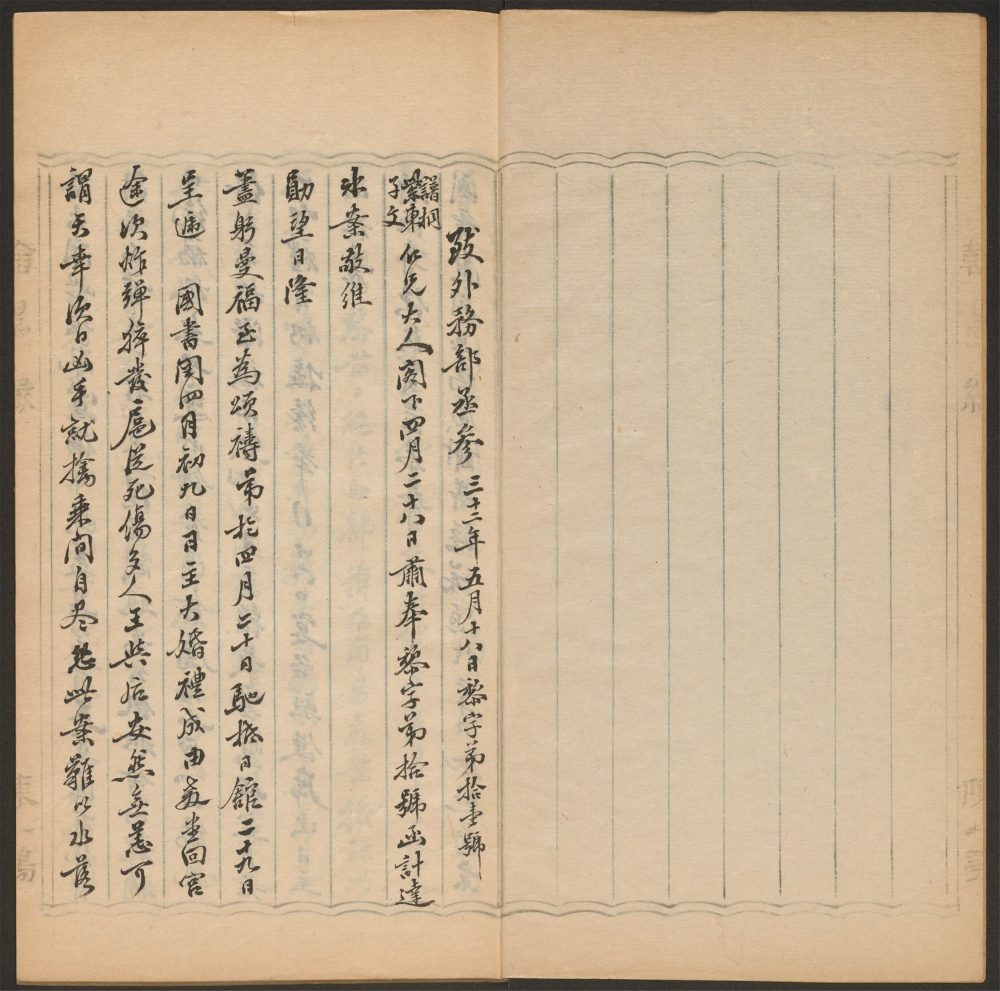 致外務部丞參 三十二年五月十八日黎字第拾壹號
譜桐
紫東
子文
仁兄大人閣下四月二十八日肅奉黎字第拾號函計達
冰案敬維
勛望日隆
藎躬曼福至為頌禱弟於四月二十日馳抵日館二十九日
呈遞 國書閏四月初九日日主大婚禮成由教堂回宮
途次炸彈猝發扈從死傷多人王與后安然無恙可
謂天幸次日凶手就擒乘間自尽此案難以水落